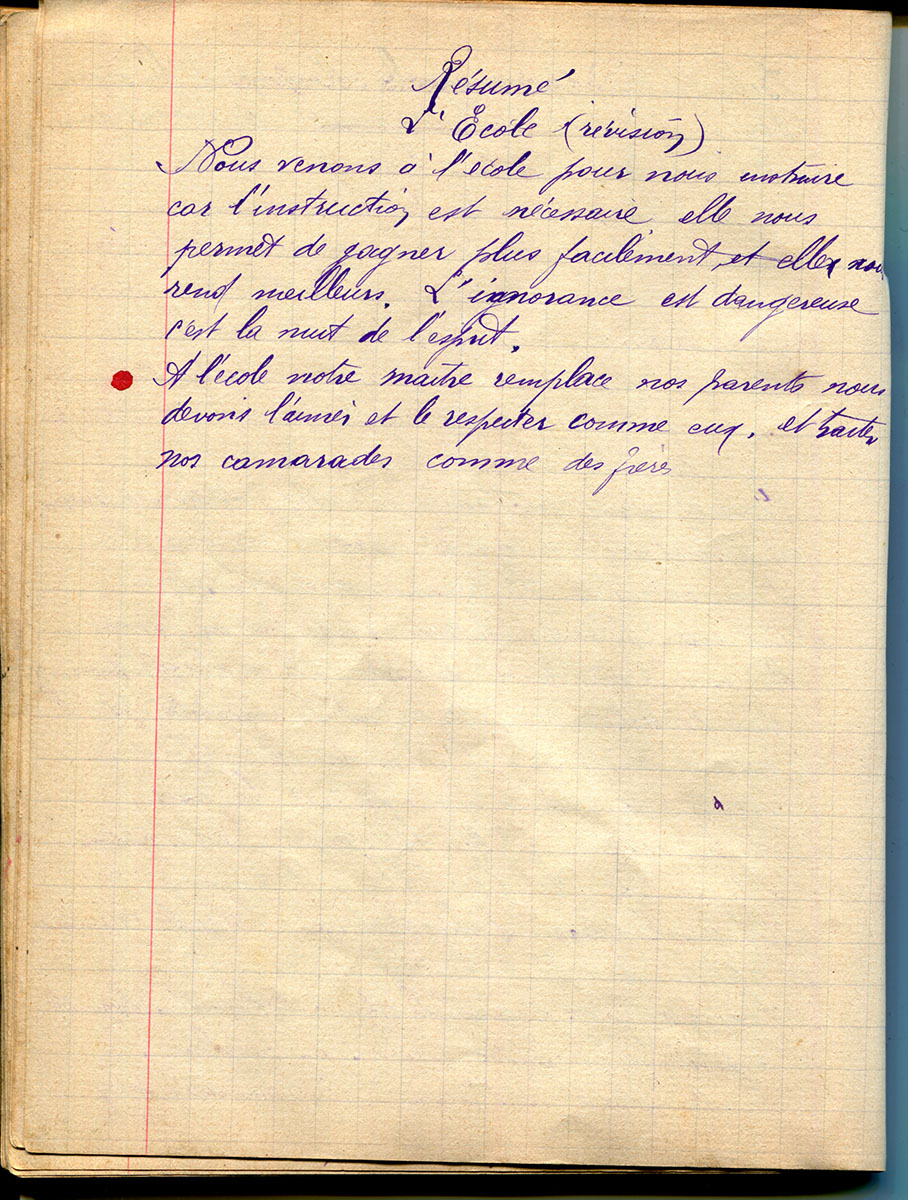 Résumé
L'École (révision)
Nous venons à l'école pour nous instruire
car l'instruction est nécessaire elle nous
permet de gagner plus facilement, et elle nous
rend meilleurs. L'ignorance est dangereuse
c'est la nuit de l'esprit.
A l'école notre maître remplace nos parents nous
devons l'aimer et le respecter comme eux. et traiter
nos camarades comme des frères